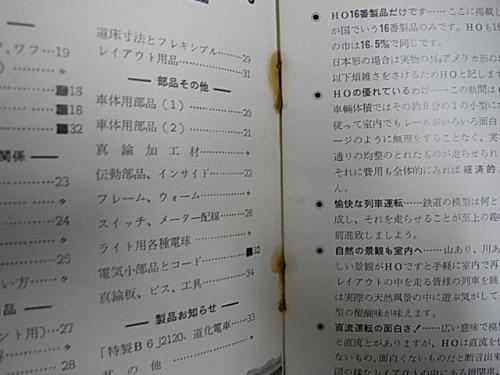 道床寸法とフレキシブル……29
レイアウト用品……31
部品その他
車体用部品(1)……20
車体用部品(2)……21
真鍮加工材……〃
伝動部品、インサイド……22
フレーム、ウォーム……〃
スイッチ、メーター配線……26
ライト用各種電球……〃
電気小部品とコード……■32
真鍮板、ビス、工具……34
製品お知らせ
「特製B6」2120．道化電車……33
その他……〃
、ワフ……19
……〃
■18
■18
■32
関係
……23
……〃
……24
……〃
……25
い方……〃
品
ント用)……27
……28
● HO16番製品だけです……ここに掲載し
か国でいう16番製品のみです。HOも16
の巾は16.5％で同じです。
日本形の場合は実物の1/80アメリカ形の場
以下煩雑さをさけるためHOと記しま
● HOの優れているわけ……この軌間は
車輛体積ではその約8分の1の小型に
従って室内でもレールがいろいろ面白
ージのように無理をすることなく、実
通りの均整のとれたものが走らせられ
それに費用も全体的にみれば経済的
ん。
● 愉快な列車運転……鉄道の模型は何と
成し、それを走らせることが至上の
前進致しましょう。
● 自然の景観も室内へ……山あり、川あ
しい景観がHOですと手軽に室内で再
レイアウトの中を走る皆様の列車を眺
は実際の天然風景の中に遊ぶ気がして
型の醍醐味が味えます。
● 直流運転の面白さ！……広い意味で模
と直流とがありますが、HOは直流を
ないもの、面白くないものだと断言出来
図の様なレイアウトの中に機関車